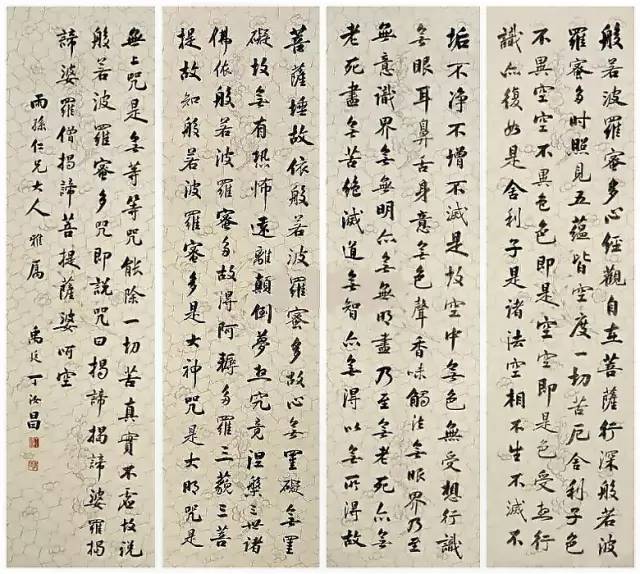 般若波羅蜜多心經觀自在菩薩行深般若波
羅蜜多時照見五蘊皆空度一切苦厄舍利子色
不異空空不異色色即是空空即是色受想行
識亦復如是舍利子是諸法空相不生不滅不
垢不淨不增不減是故空中無色無受想行識
無眼耳鼻舌身意無色聲香味觸法無眼界乃至
無意識界無無明亦無無明盡乃至無老死亦無
老死盡無苦絶滅道無智亦無得以無所得故
菩薩埵故依般若波羅蜜多故心無罣礙無罣
礙故無有恐怖遠離顛倒夢想究竟涅槃三世諸
佛依般若波羅蜜多故得阿耨多羅三藐三菩
提故知般若波羅蜜多是大神咒是大明咒是
無上咒是無等等咒能除一切苦真實不虛故說
般若波羅蜜多咒即說咒曰揭諦揭諦婆羅揭
諦婆羅僧揭諦菩提薩婆呵空
雨孫仁兄大人雅屬
禹廷丁汝昌